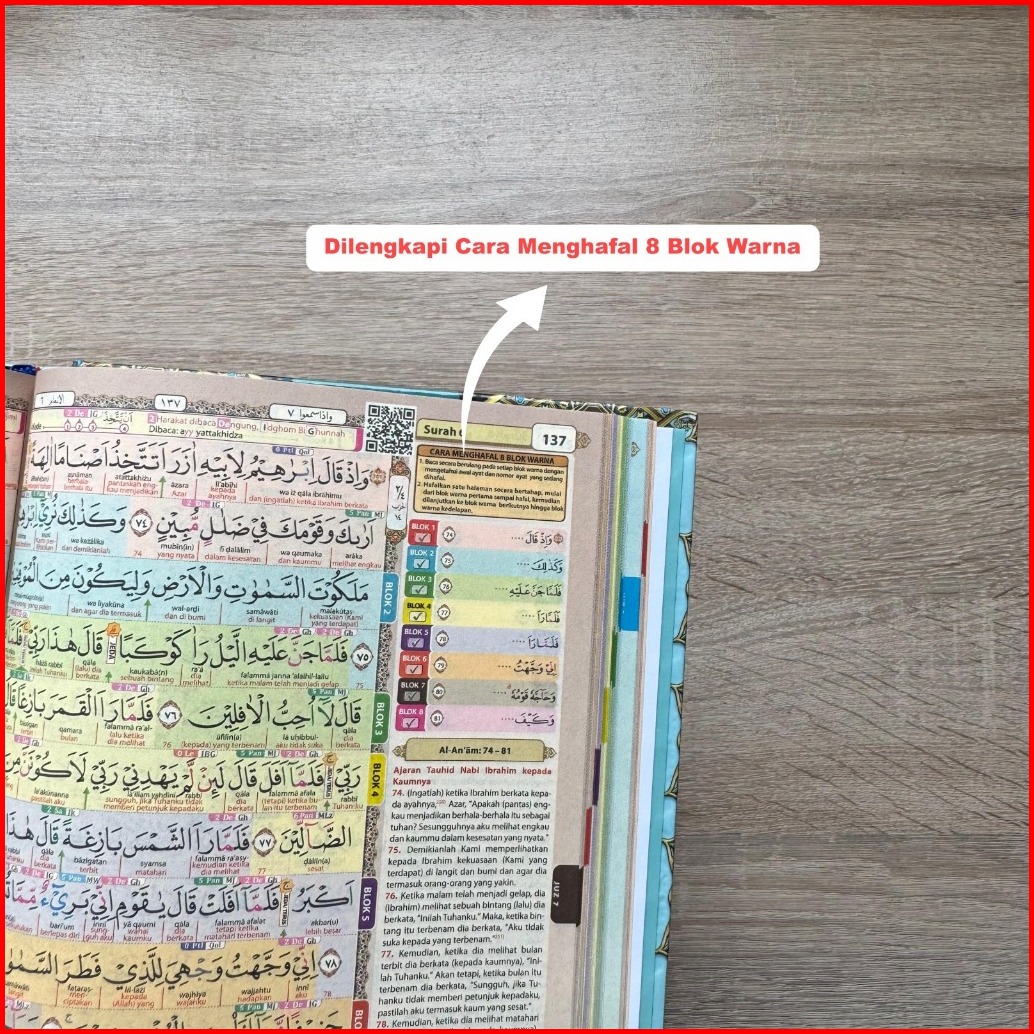 Dilengkapi Cara Menghafal 8 Blok Warna
الانعام ٦
١٣٧
واذاسمعوا ٧
2 Harakat dibaca Dengung, Idghom Bi Ghunnah
Dibaca: ayy yattakhidza
وَاِذْ قَالَ اِبْرٰهِيْمُ لِاَبِيْهِ اٰزَرَ اَتَتَّخِذُ اَصْنَامًا اٰلِهَةً
wa iż qāla ibrāhīmu
li'abīhi
āzara
atattakhiżu
aṣnāman
dan (ingatlah) ketika Ibrahim berkata
kepada ayahnya
Azar
apakah engkau menjadikan
berhala-berhala itu
اَرٰىكَ وَقَوْمَكَ فِيْ ضَلٰلٍ مُّبِيْنٍ ٧٤ وَكَذٰلِكَ نُرِيْٓ
arāka
wa qaumaka
fī ḍalālin
mubīn(in)
wa każālika
melihat engkau
dan kaummu
dalam kesesatan
yang nyata
74
dan demikianlah
مَلَكُوْتَ السَّمٰوٰتِ وَالْاَرْضِ وَلِيَكُوْنَ مِنَ
malakūtas
samāwāti
wal-arḍi
wa liyakūna
kekuasaan (Kami yang terdapat)
di langit
dan di bumi
dan agar dia termasuk
BLOK 2
٧٥ فَلَمَّا جَنَّ عَلَيْهِ الَّيْلُ رَاٰ كَوْكَبًا قَالَ هٰذَا رَبِّيْ
falammā janna 'alaihil-lailu
ra'ā
kaukabā(n)
qāla
hāżā rabbī
75
ketika malam telah menjadi gelap
(dia) melihat
sebuah bintang
(lalu) dia berkata
inilah Tuhanku
قَالَ لَآ اُحِبُّ الْاٰفِلِيْنَ ٧٦ فَلَمَّا رَاَ الْقَمَرَ بَازِغًا
qāla
lā uḥibbul-
āfilīn(a)
falammā ra'al-
qamara
dia berkata
aku tidak suka
(kepada) yang terbenam
76
lalu ketika dia melihat
bulan
BLOK 3
رَبِّيْ فَلَمَّآ اَفَلَ قَالَ لَىِٕنْ لَّمْ يَهْدِنِيْ رَبِّيْ لَاَكُوْنَنَّ
rabbī
falammā afala
qāla
la'akūnanna
Tuhanku
(tetapi) ketika bulan itu terbenam
dia berkata
sungguh, jika Tuhanku tidak memberi petunjuk kepadaku
pastilah aku
BLOK 4
الضَّاۤلِّيْنَ ٧٧ فَلَمَّا رَاَ الشَّمْسَ بَازِغَةً قَالَ هٰذَا
ḍālīn(a)
falammā ra'asy-
syamsa
bāzigatan
qāla
sesat
77
kemudian ketika dia melihat
matahari
terbit
dia berkata
اَكْبَرُ فَلَمَّآ اَفَلَتْ قَالَ يٰقَوْمِ اِنِّيْ بَرِيْۤءٌ مِّمَّا
akbar(u)
falammā afalat
qāla
yā qaumi
innī
barī'um
lebih besar
tetapi ketika matahari terbenam
dia berkata
wahai kaumku
sungguh aku
berlepas diri
BLOK 5
٧٨ اِنِّيْ وَجَّهْتُ وَجْهِيَ لِلَّذِيْ فَطَرَ السَّمٰوٰتِ
innī
wajjahtu
wajhiya
lil-lażī
faṭaras-
78
aku
hadapkan
wajahku
kepada (Allah) yang
menciptakan
Surah 6
137
CARA MENGHAFAL 8 BLOK WARNA
1. Baca secara berulang pada setiap blok warna dengan
mengetahui awal ayat dan nomor ayat yang sedang
dihafal.
2. Hafalkan satu halaman secara bertahap, mulai
dari blok warna pertama sampai hafal, kemudian
dilanjutkan ke blok warna berikutnya hingga blok
warna kedelapan.
BLOK 1 74 وَاِذْ قَالَ ....
BLOK 2 75 وَكَذٰلِكَ ....
BLOK 3 76 فَلَمَّا جَنَّ عَلَيْهِ ....
BLOK 4 77 فَلَمَّا رَاَ ....
BLOK 5 78 فَلَمَّا رَاَ ....
BLOK 6 79 اِنِّيْ وَجَّهْتُ ....
BLOK 7 80 وَحَاۤجَّهٗ قَوْمُهٗ ....
BLOK 8 81 وَكَيْفَ ....
Al-An'ām: 74 – 81
Ajaran Tauhid Nabi Ibrahim kepada
Kaumnya
74. (Ingatlah) ketika Ibrahim berkata kepa-
da ayahnya, Azar, "Apakah (pantas) eng-
kau menjadikan berhala-berhala itu sebagai
tuhan? Sesungguhnya aku melihat engkau
dan kaummu dalam kesesatan yang nyata."
75. Demikianlah Kami memperlihatkan
kepada Ibrahim kekuasaan (Kami yang
terdapat) di langit dan bumi dan agar dia
termasuk orang-orang yang yakin.
76. Ketika malam telah menjadi gelap, dia
(Ibrahim) melihat sebuah bintang (lalu) dia
berkata, "Inilah Tuhanku." Maka, ketika bin-
tang itu terbenam dia berkata, "Aku tidak
suka kepada yang terbenam."
77. Kemudian, ketika dia melihat bulan
terbit dia berkata (kepada kaumnya), "Ini-
lah Tuhanku." Akan tetapi, ketika bulan itu
terbenam dia berkata, "Sungguh, jika Tu-
hanku tidak memberi petunjuk kepadaku,
pastilah aku termasuk kaum yang sesat."
78. Kemudian, ketika dia melihat matahari
JUZ 7